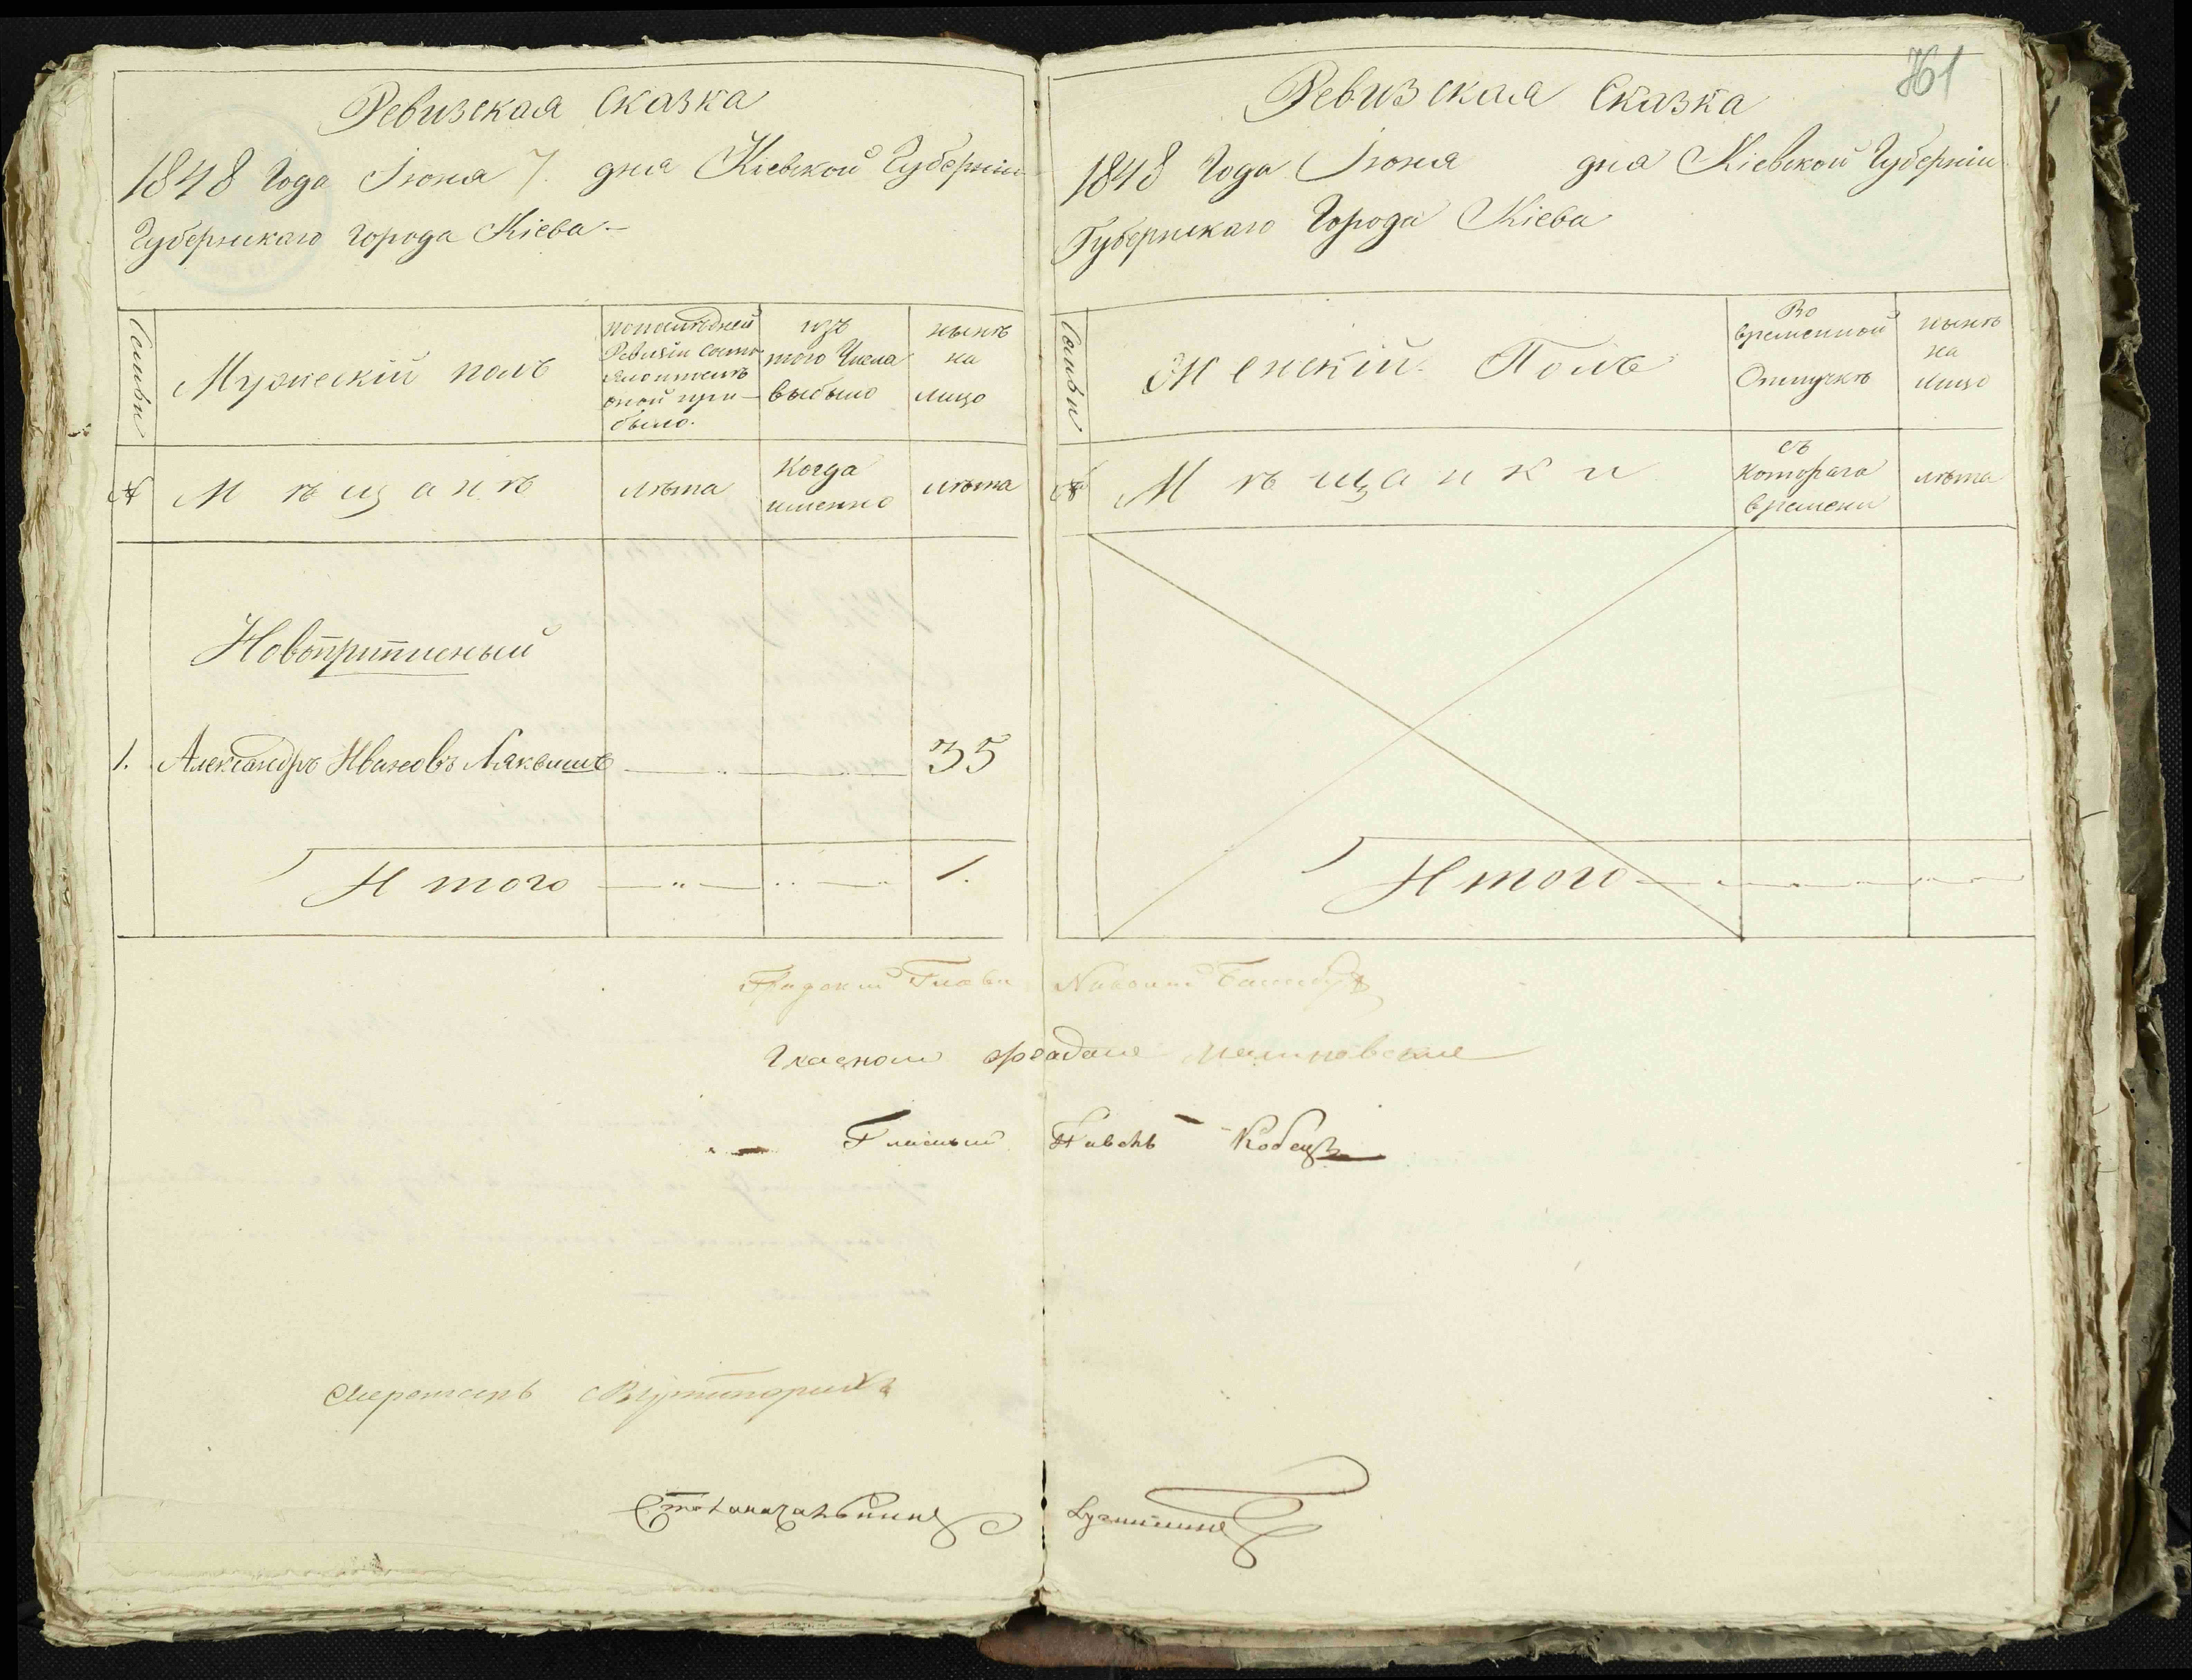 Ревизская Сказка
1848 Года Іюня 7 дня Кіевской Губерніи
Губернскаго Города Кіева
Семьи
Мужескій полъ
по последней
Ревизіи состо
яло и после
оной при-
было.
изъ
того Числа
выбыло
ныне
на
лицо
№
Мѣщане
лѣта
Когда
именно
лѣта
Новоприписный
1. Александръ Ивановъ 35
Итого 1.
761
Ревизская Сказка
1848 Года Іюня дня Кіевской Губерніи
Губернскаго Города Кіева
Семьи
Женскій Полъ
Во
временной
Отлучкѣ
нынѣ
на
лицо
№
Мѣщанки
съ
Котораго
времени
лѣта
Итого
Градский Глава
Гласной
Гласный Павелъ Кобецъ
Столоначальникъ